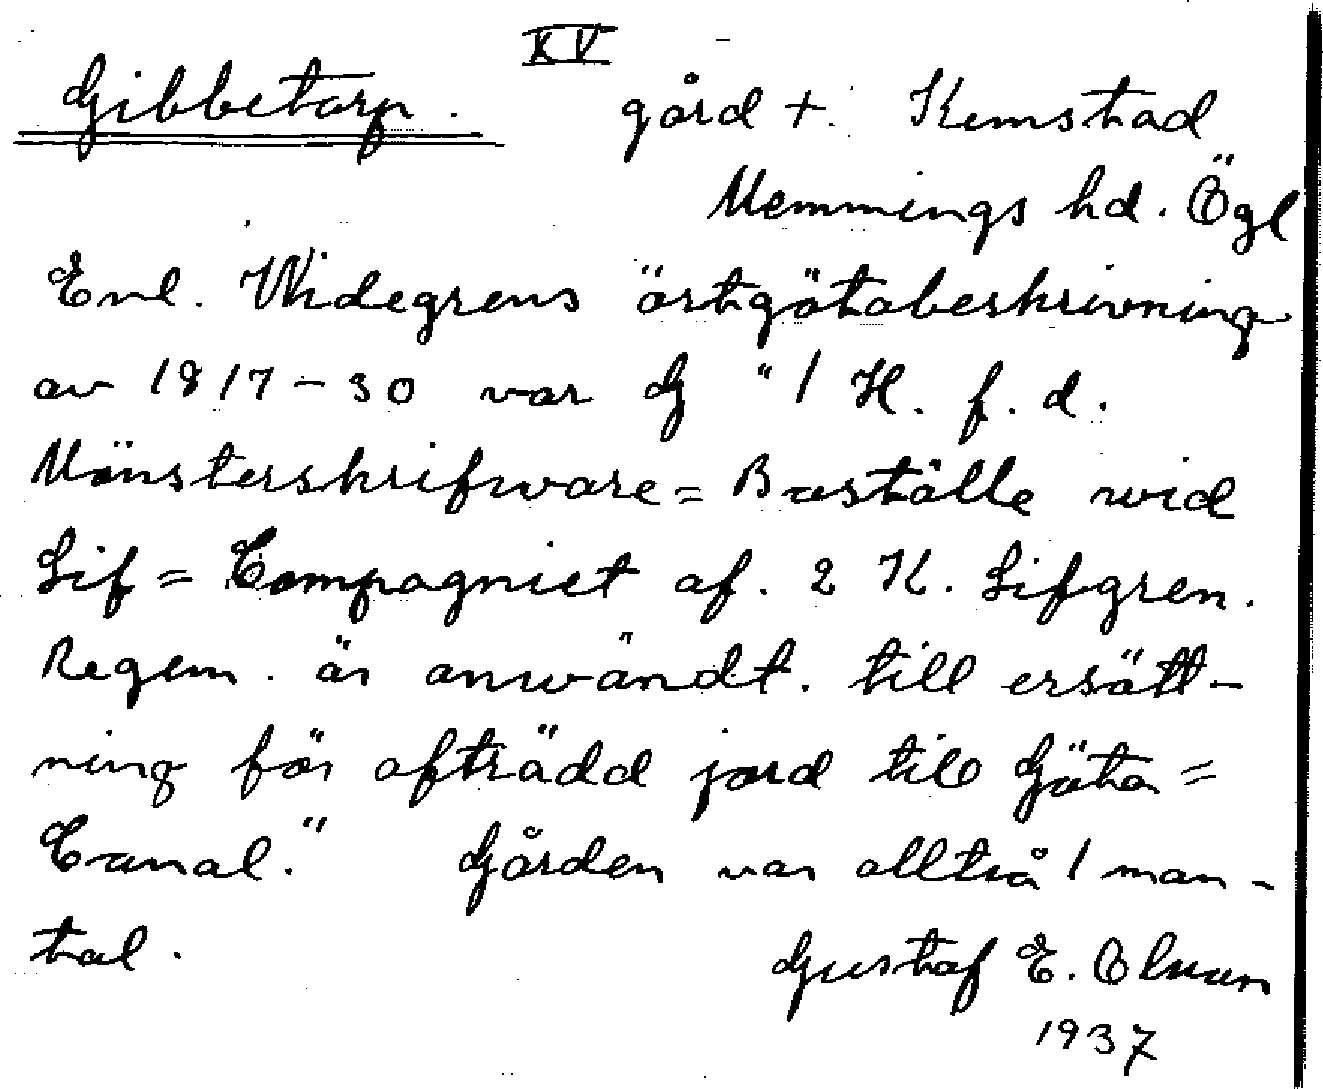 XV
Gibbetorp. gård + Kimstad
Memmings hd. Ögl
Enl. Widegrens östgötabeskrivning
av 1817-30 var G "1 H. f. d.
Mönsterskrifware= Boställe wid
Lif= Compagniet af. 2 K. Lifgren.
Regem. är anwändt. till ersätt-
ning för afträdd jord till Göta=
Canal." Gården var alltså 1 man-
tal.
Gustaf E. Olsson
1937